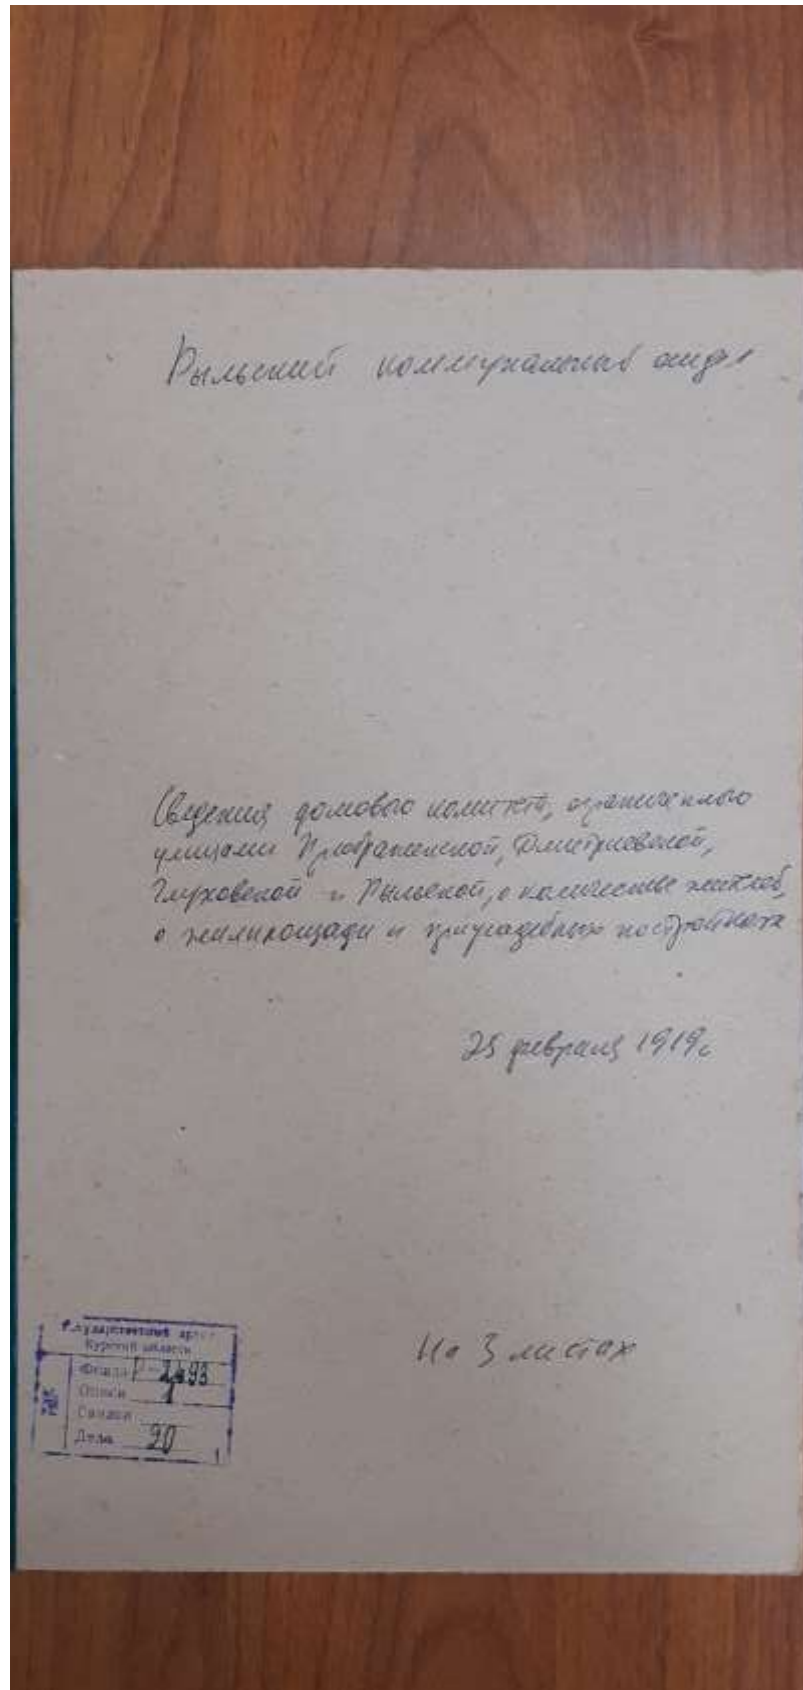 Рыльский коммунальный отдел
Сведения домового комитета, ограниченного
улицами Преображенской, Дмитриевской,
Глуховской и Рыльской, о количестве жителей,
о жилплощади и приусадебных постройках
25 февраля 1919г.
На 3 листах
Государственный архив
Курской области
Фонд Р-2493
Опись 1
Связка
Дело 20